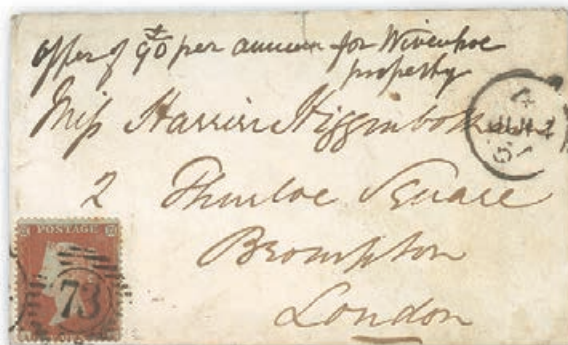 offer of £90 per annum for Wivenhoe
property
Miss Harriet Higginbotham
2 Thurloe Square
Brompton
London
POSTAGE
73